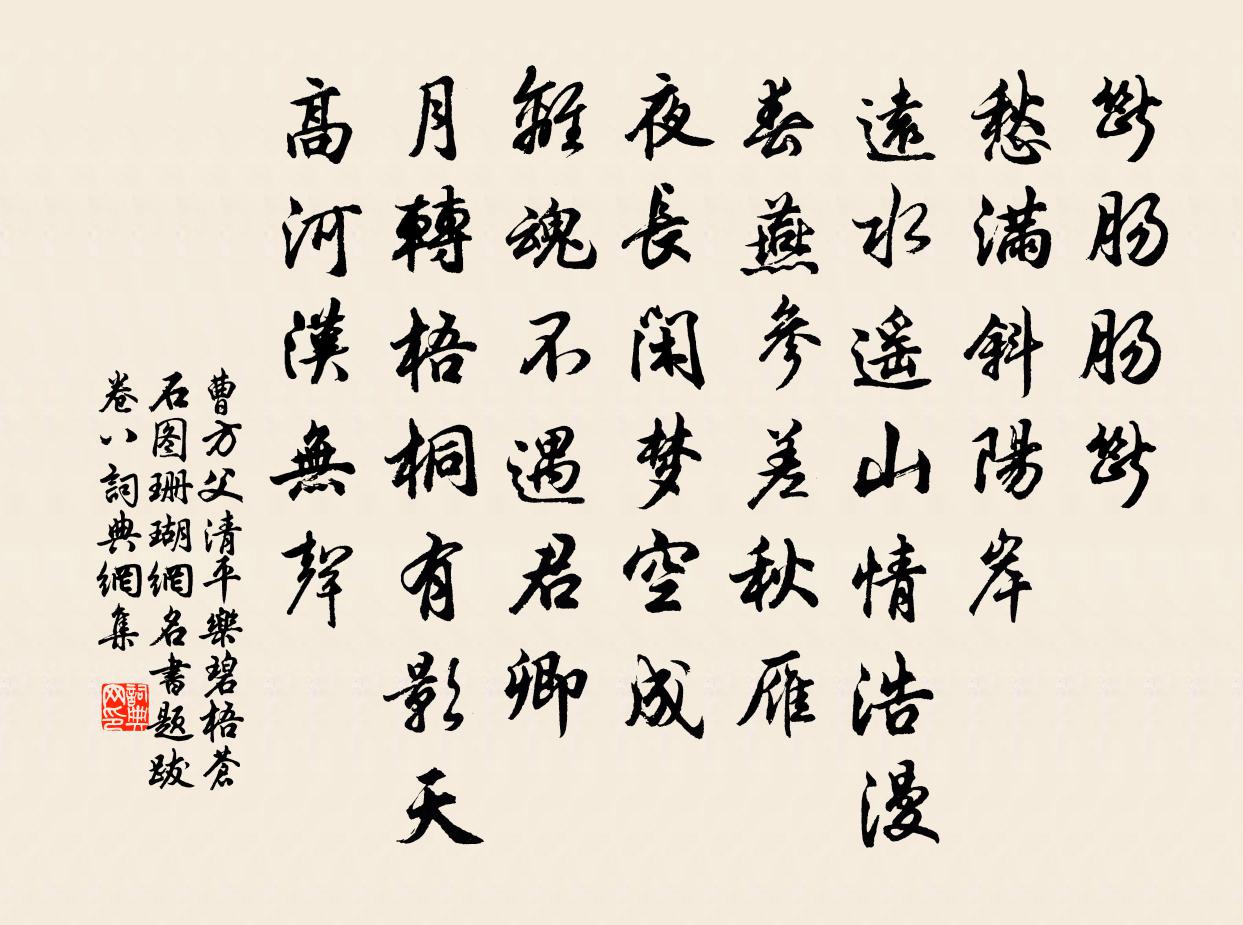 斷肠肠斷
愁滿斜陽岸
遠水遥山情浩漫
春燕參差秋雁
夜長闲梦空成
離魂不遇君卿
月轉梧桐有影天
高河漢無聲
曹方父清平樂碧梧蒼
石图珊瑚網名書题跋
卷八詞典網集
詞典网印